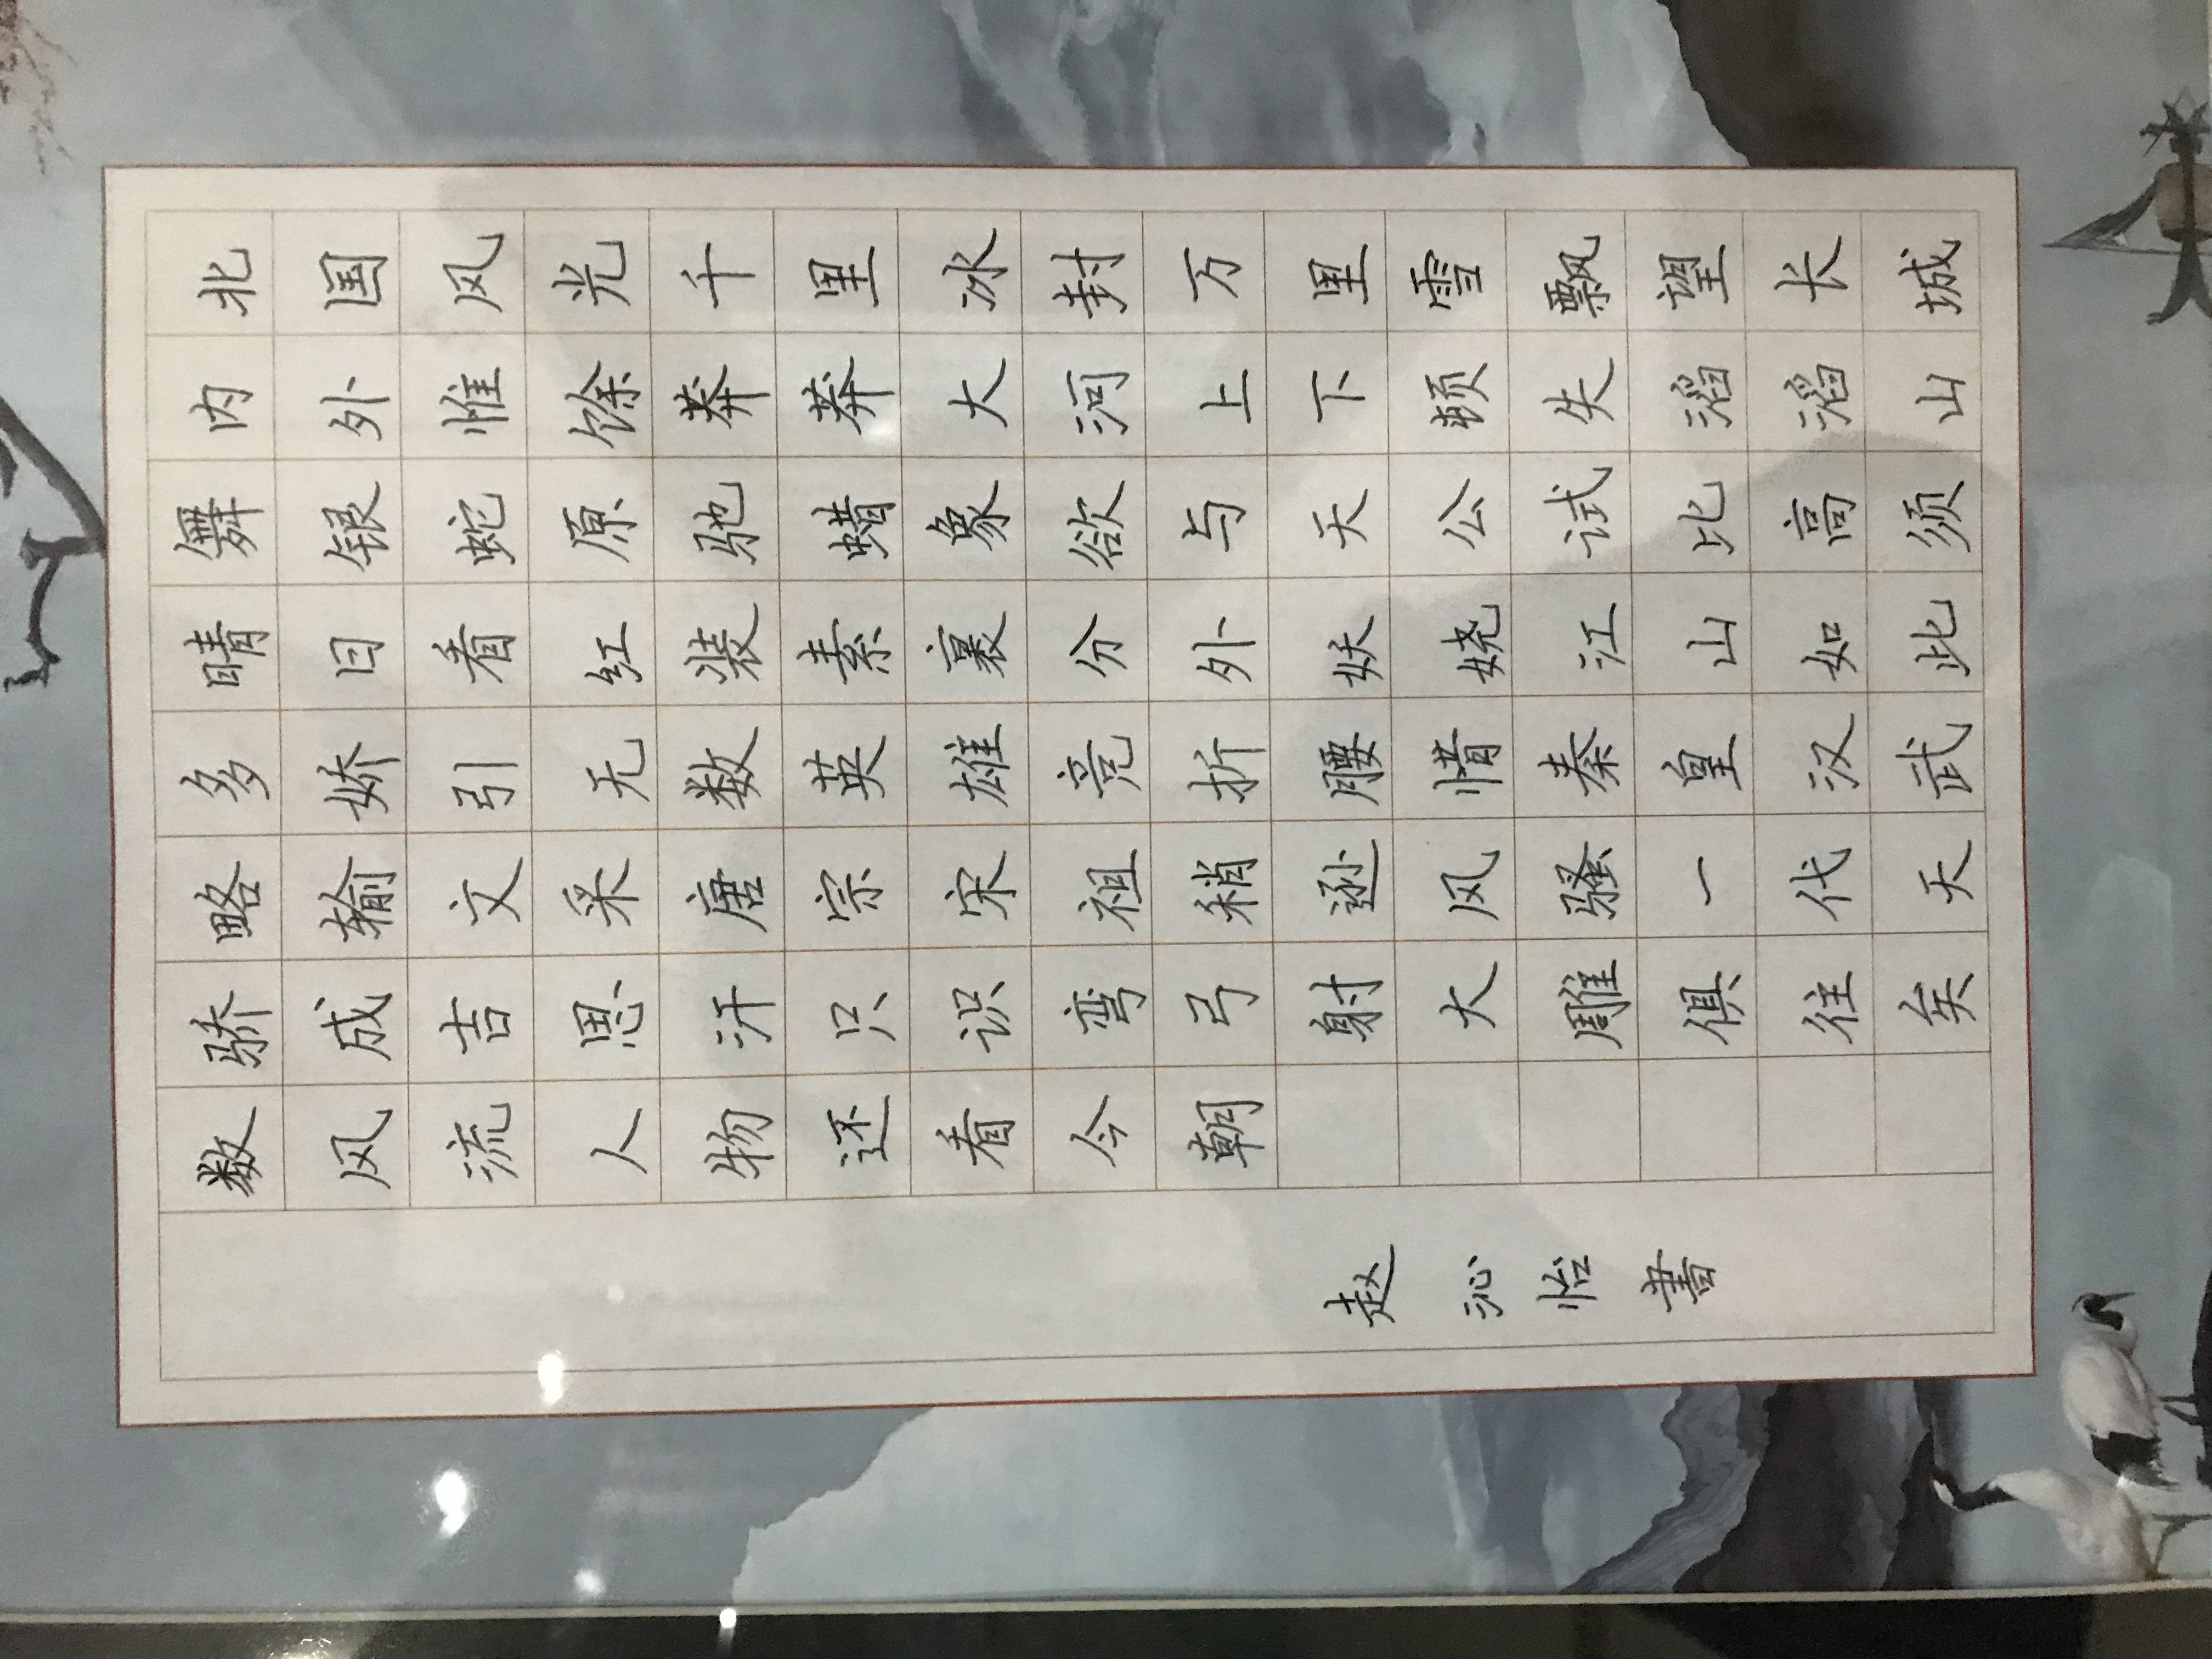 北国风光千里冰封万里雪飘望长城
内外惟馀莽莽大河上下顿失滔滔山
舞银蛇原驰蜡象欲与天公试比高须
晴日看红装素裹分外妖娆江山如此
多娇引无数英雄竞折腰惜秦皇汉武
略输文采唐宗宋祖稍逊风骚一代天
骄成吉思汗只识弯弓射大雕俱往矣
数风流人物还看今朝
赵沁怡書